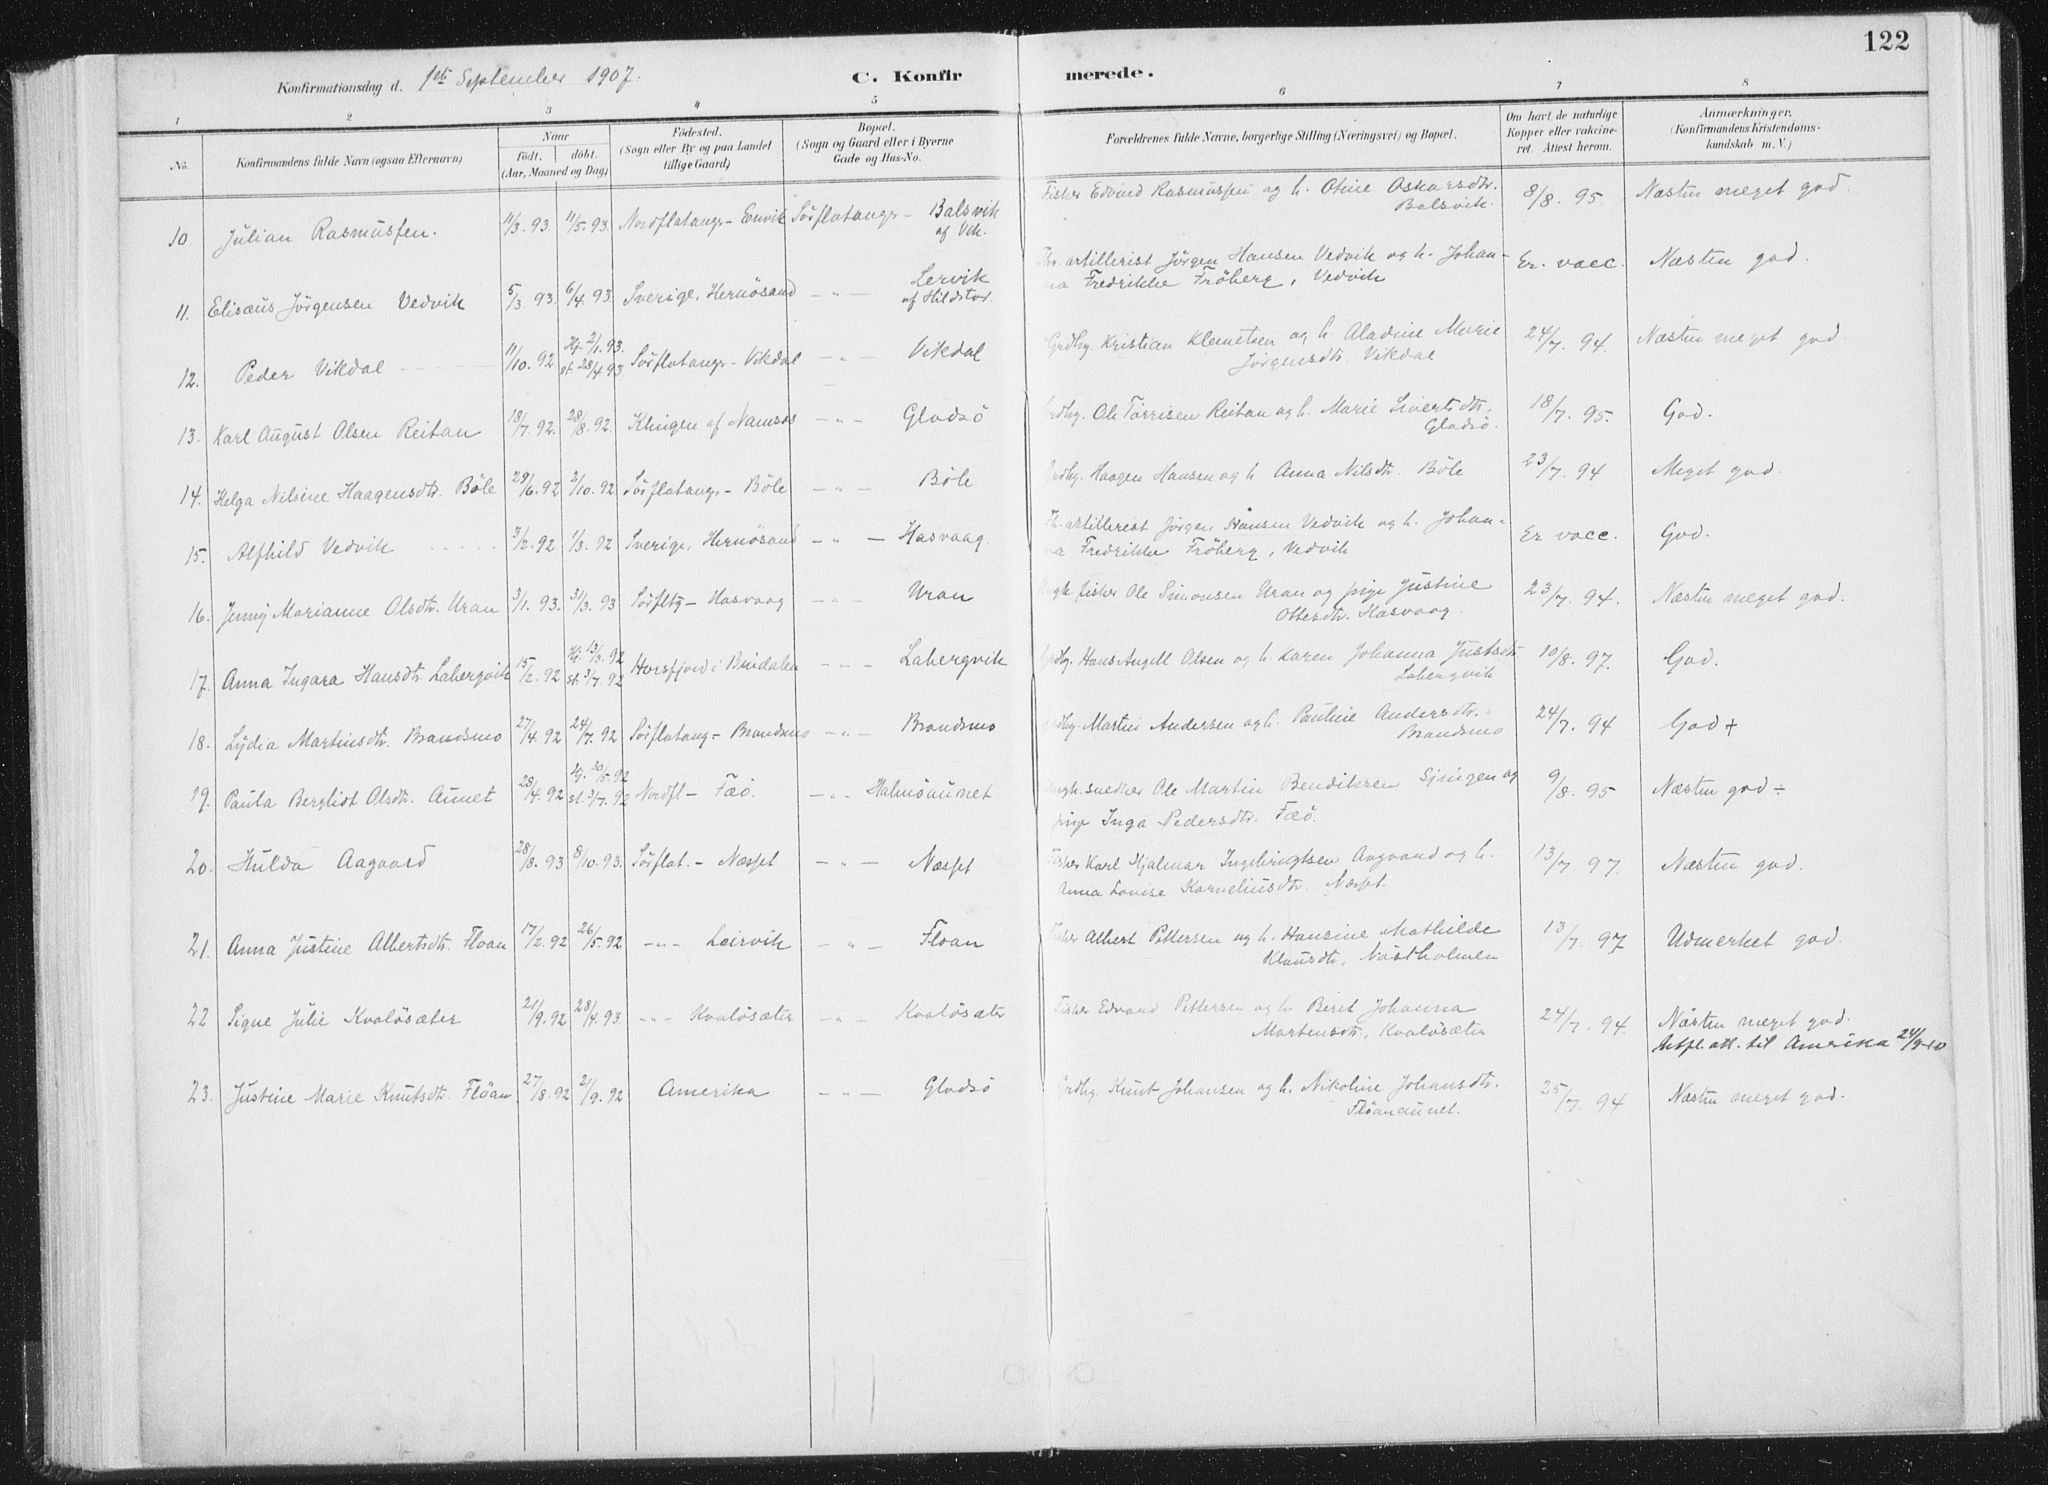 122
Konfirmationsdag d. 1ste September 1907.
C. Konfirmerede.
1 2 3 4 5 6 7 8
No. Konfirmandens fulde Navn (ogsaa Efternavn) Naar født. døbt. (Aar, Maaned og Dag) Fødested. (Sogn eller By og paa Landet tillige Gaard) Bopæl. (Sogn og Gaard eller i Byerne Gade og Hus-No. Forældrenes fulde Navne, borgerlige Stilling (Næringsvei) og Bopæl. Om havt de naturlige Kopper eller vakcineret. Attest herom. Anmærkninger. (Konfirmandens Kristendomskundskab m. V.)
10. Julian Rasmussen. 11/3. 93. 11/5. 93. Nordflatangr - Envik Sørflatangr - Balsvik af Vik. Fisker Edvind Rasmussen og h. Otine Oskarsdtr. Balsvik. 8/8. 95. Næsten meget god.
11. Elisæus Jørgensen Vedvik 5/3. 93. 6/4. 93. Sverige, Hernøsand - " - Lervik af Hildstor. artillerist Jørgen Hansen Vedvik og h. Johanna Fredrikke Frøberg, Vedvik Er vacc. Næsten god.
12. Peder Vikdal 11/10. 92 Hj. 2/1. 93. st. 28/4 93. Sørflatangr - Vikdal - " - Vikdal Grdbg. Kristian Klemetsen og h. Aladine Marie Jørgensdtr. Vikdal 24/7. 94. Næsten meget god.
13. Karl August Olsen Reitan 18/7. 92. 28/8. 92. Klingen af Namsos - " - Gladsø Grdbg. Ole Tørrisen Reitan og h. Marie Sivertsdtr. Gladsø. 18/7. 95. God.
14. Helga Nilsine Haagensdtr. Bøle 29/6. 92 2/10. 92 Sørflatangr - Bøle - " - Bøle Grdbg. Haagen Hansen og h. Anna Nilsdtr. Bøle 23/7. 94 Meget god.
15. Alfhild Vedvik 3/2. 92 1/3. 92 Sverige, Hernøsand - " - Hasvaag. artillerist Jørgen Hansen Vedvik og h. Johanna Fredrikke Frøberg, Vedvik Er vacc. God.
16. Jenny Marianne Olsdtr. Uran 3/1. 93. 31/3. 93 Sørfltg - Hasvaag - " - Uran Ungk. fisker Ole Simonsen Uran og pige Justine Ottersdtr. Hasvaag. 23/7. 94. Næsten meget god.
17. Anna Ingara Hansdtr. Labergvik 15/2. 92 Hj. 13/3. 92 st. 3/7. 92 Horsfjord i Bindalen - " - Labergvik Grdbg. Hans Angell Olsen og h. Karen Johanna Justsdtr. Labergvik 10/8. 97. God.
18. Lydia Martinsdtr. Brandsmo 27/4. 92 24/7. 92 Sørflatang - Brandsmo - " - Brandsmo Grdbg. Martin Andersen og h. Pauline Andersdtr. Brandsmo 24/7. 94 God +
19. Paula Bergliot Olsdtr. Aunet 28/4. 92 Hj. 30/5. 92 st. 3/7. 92 Nordfl - Fæø. - " - Halmøaunet Ungk. snedker Ole Martin Bendiksen Sjingen og pige Inga Pedersdtr. Fæø. 9/8. 95 Næsten god ÷
20. Hulda Aagaard 28/8. 93 8/10. 93. Sørflat. - Næsset - " - Næsset Fisker Karl Hjalmar Ingebrigtsen Aagaard og h. Anna Lovise Korneliusdtr. Næsset. 13/7. 97. Næsten god.
21. Anna Justine Albertsdtr. Floan 17/2. 92 26/5. 92 - " - Leirvik - " - Floan Fisker Albert Pettersen og h. Hansine Mathilde Klausdtr, Nøstholmen 13/7. 97 Udmerket god.
22 Signe Julie Kvaløsæter 21/9. 92 28/4. 93. - " - Kvaløsæter - " - Kvaløsæter Fisker Edvard Pettersen og h. Beret Johanna Martensdtr, Kvaløsæter 24/7. 94. Næsten meget god. Utfl. att. til Amerika 24/9-10
23. Justine Marie Knutsdtr. Fløan. 27/8. 92 21/9. 92 Amerika - " - Gladsø Grdbg. Knut Johansen og h. Nikoline Johansdtr. Fløanaunet. 25/7. 94 Næsten meget god.